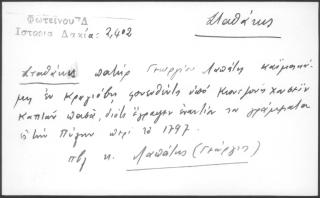 Φωτεινού Δ
Ιστορια Δακίας 2,402
Σταθάκης
Σταθάκης πατήρ Γεωργίου Λαπάτη
μης εν Κραγιόβη φονευθείς υπό Κιουτμούς Χουσεΐν
Καπτάν πασά, διότι έγραφεν εναντίον του γράμματα
εις την Πύλην περί το 1797.
πβ κ. Λαπάτης (Γεώργιος)